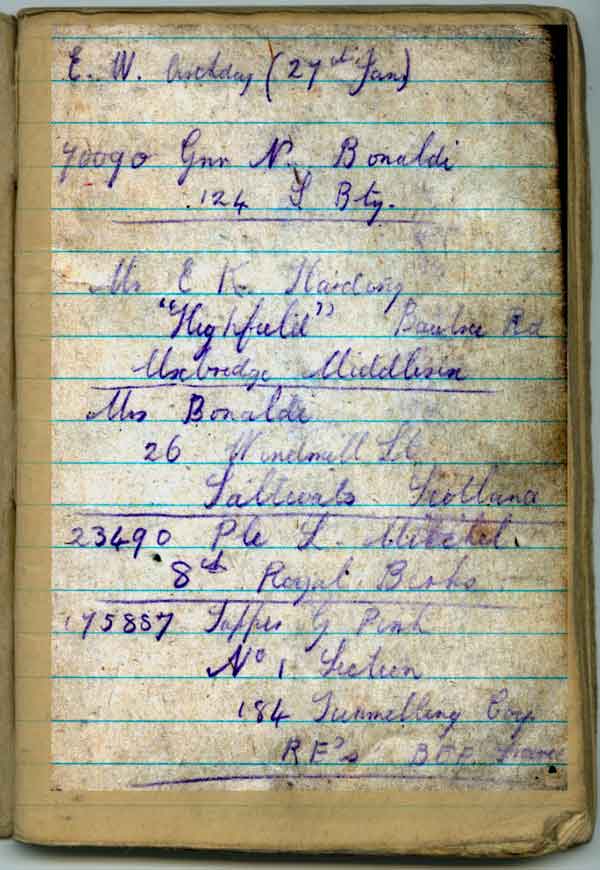 E. W. (27th Jan)
70090 Gnr N. Bonaldi
124 S Bty.
Mr E K. Harding
"Highfield" Rd
Uxbridge Middlesex
Mrs Bonaldi
26 Windmill St
Saltcoats Scotland
23490 Pte L. Mitchel.
8th Royal Berks
175887 Sapper G Pink
No 1 Section
184 Tunnelling Coy
RE's BEF France